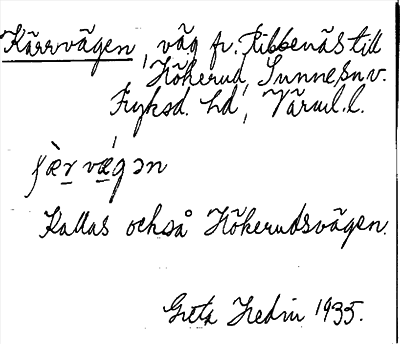 Kärrvägen, väg fr. Ribbenäs till
Hökerud, Sunne sn v.
Fryksd. hd, Värml. l.
ʃæ̀r væ̀gən
Kallas också Hökerudsvägen.
Greta Hedin 1935.